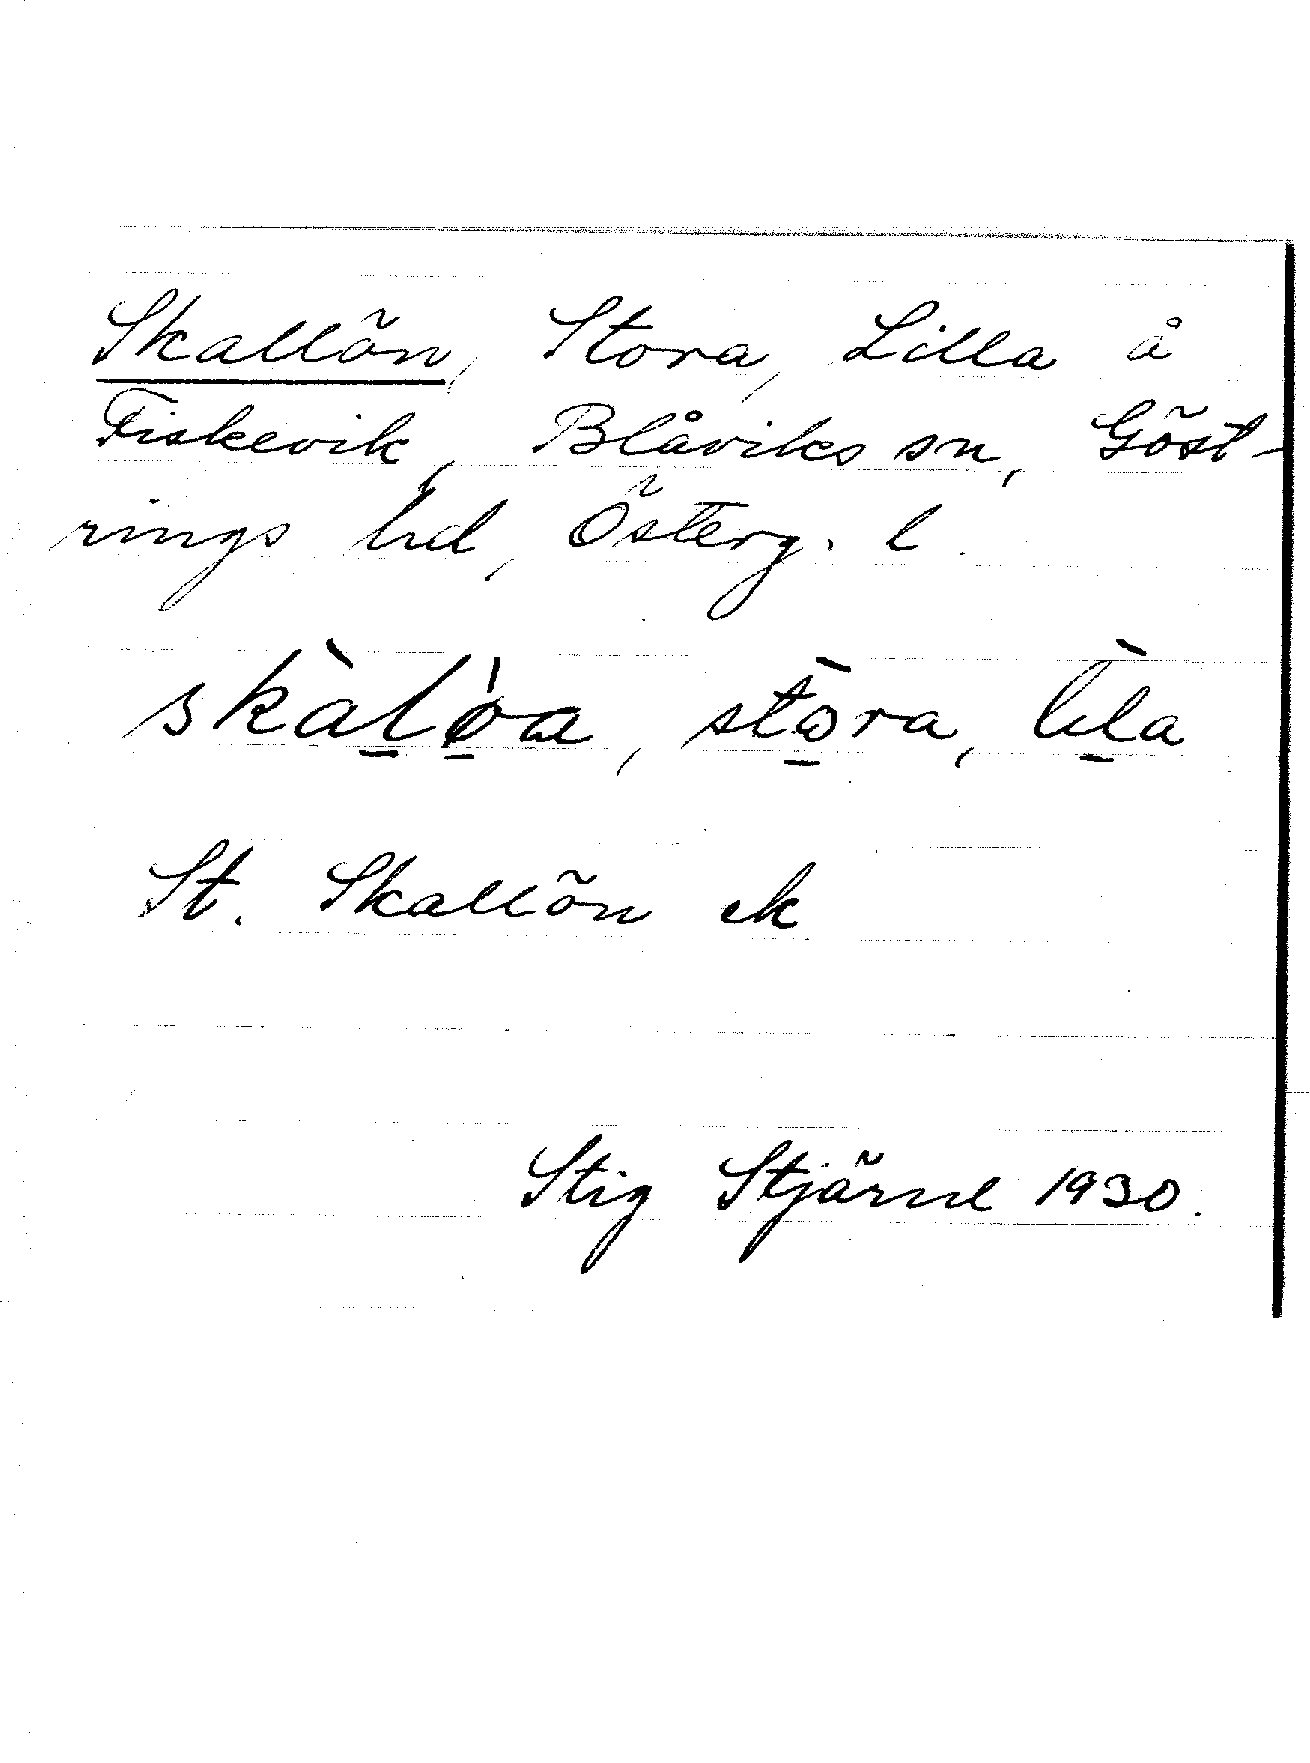 Skallön, Stora, Lilla å
Fiskevik, Blåviks sn, Göst-
rings hd, Österg. l.
skàl̲ǿ̲a, stò̲ra, lìl̲a
St. Skallön ek
Stig Stjärne 1930.